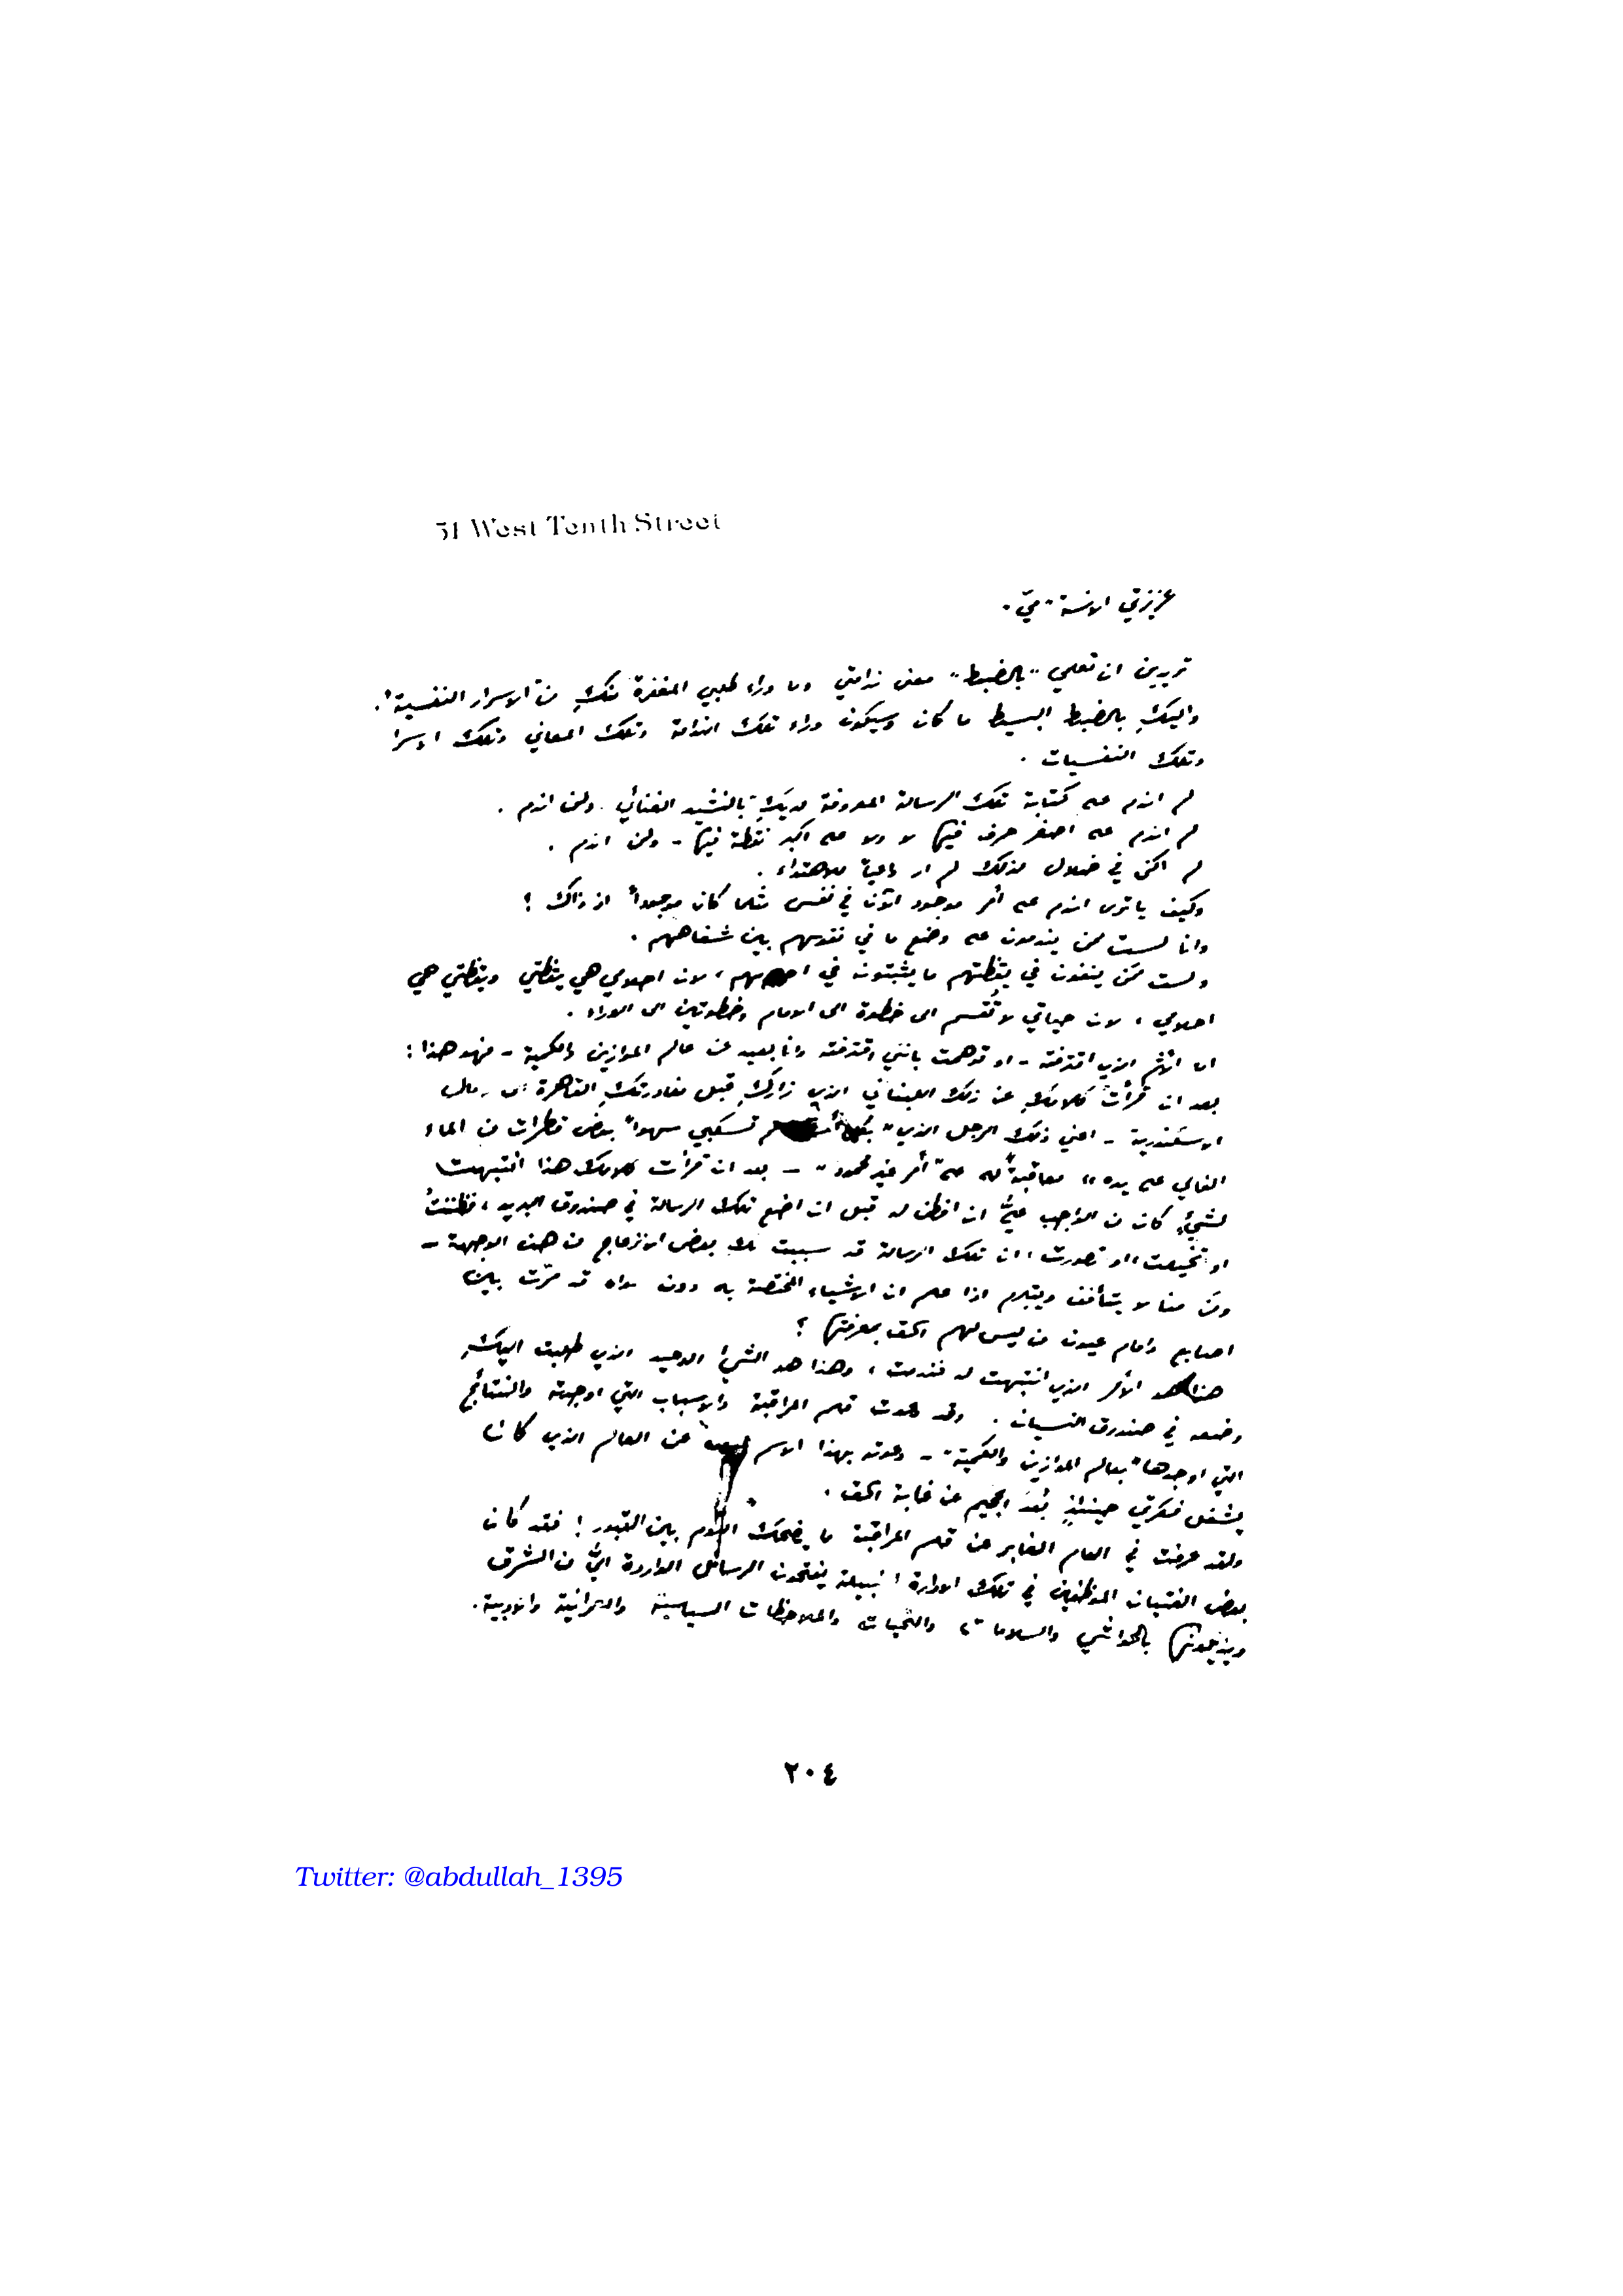 51 West Tenth Street
عزيزتي الانسة ميّ.
تريدين ان تعلمي "بالضبط" معنى ندامتي وما وراء طلبي المغفرة منكِ من الاسرار النفسية.
واليكِ بالضبط البسيط ما كان وسيكون وراء تلك الندامة وتلك المعاني وتلك الاسرا
وتلك النفسيات .
لم اندم على كتابة تلك الرسالة المعروفة لديكِ "بالنشيد الغنائي" ولن اندم .
لم اندم على اصغر حرف فيها لا ولا على اكبر نقطة فيها - ولن اندم .
لم اكن في ضلال لذلك لم ار داعياً للاهتداء .
وكيف يا ترى اندم على أمر موجود الآن في نفسي مثلما كان موجوداً اذ ذاك ؟
وانا لست ممن يندمون على وضع ما في نفوسهم بين شفاههم .
ولست ممَن ينفون في يقظتهم ما يثبتونه في احلامهم ، لان احلامي هي يقظتي ويقظتي هي
احلامي ، لان حياتي لا تُقسم الى خطوة الى الامام وخطوتين الى الوراء .
اما الأثم الذي اقترفته - او توهمت بانني اقترفته وانا بعيد عن عالم الموازين والكمية - فهو هذا :
بعد ان قرأت كلامكِ عن ذلك اللبناني الذي زاركِ قبل مغادرتكِ القاهرة الى رمال
الاسكندرية - اعني ذلك الرجل الذي " لم تسكبي سهواً بعض قطرات من الماء
الغالي على يده " معاقبةً له على أمر غير محمود " - بعد ان قرأت كلامك هذا انتبهت
لشيءٍ كان من الواجب عليَّ ان افطن له قبل ان اضع تلك الرسالة في صندوق البريد ، فظننتُ
او تخيلت ، او تصورت ، ان تلك الرسالة قد سببت لك بعض الانزعاج من هذه الوجهة -
ومَن منا لا يتأفف ويتبرم اذا علم ان الاشياء المختصة به دون سواه قد مرّت بين
اصابع وامام عيون من ليس لهم الحق بمعرفتها ؟
هذا هو الأمر الذي انتبهت له فندمت ، وهذا هو الشيءُ الوحيد الذي طلبت اليكِ
وضعه في صندوق النسيان . وقد دعوت قلم المراقبة والاسباب التي اوجدته والنتائج
التي اوجدها "بعالم الموازين والكمية" - دعوته بهذا الاسم لبعده عن العالم الذي كان
يشغل فكرتي حينئذٍ بُعدَ الجحيم عن غابة الحق .
ولقد عرفت في العام الغابر عن قلم المراقبة ما يضحك البوم بين القبور ! فقد كان
بعض الفتيان الموظفين في تلك الادارة النبيلة يفتحون الرسائل الواردة اليَّ من الشرق
ويذيلونها بالحواشي والسلامات والتحيات والملاحظات السياسية والعمرانية والادبية.
٢٠٤
Twitter: @abdullah_1395